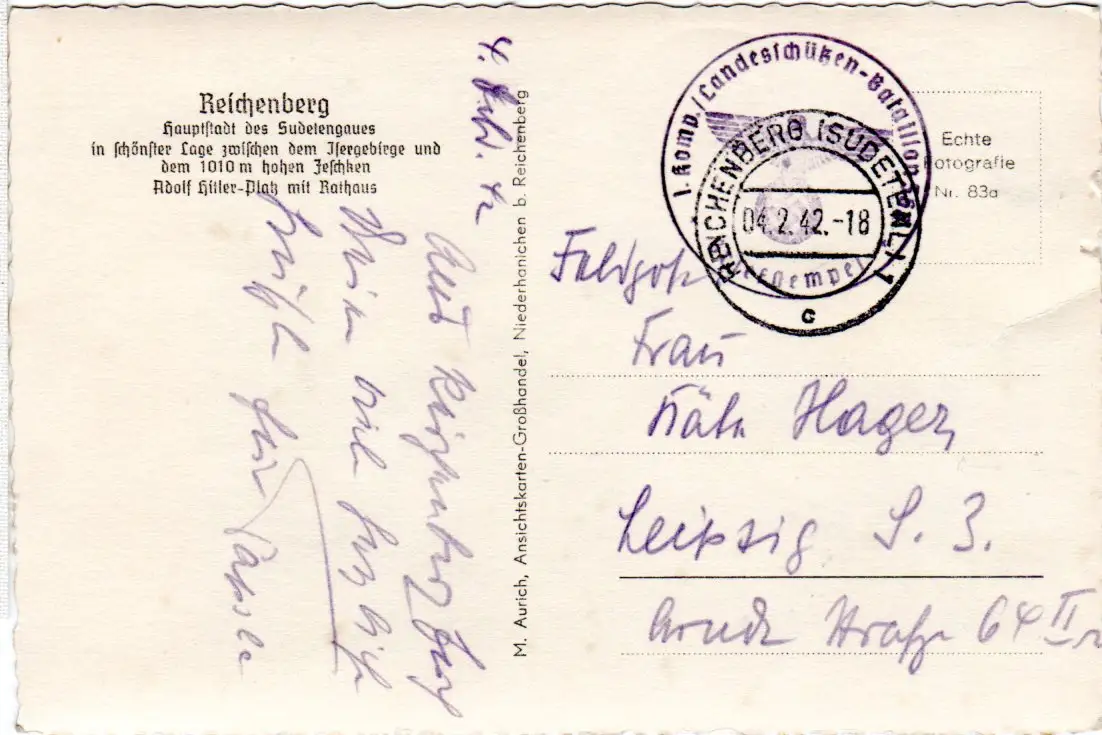 Reichenberg
Hauptstadt des Sudetengaues
in schönster Lage zwischen dem Isergebirge und
dem 1010 m hohen Jeschken
Adolf Hitler-Platz mit Rathaus
4. Febr. 42
Aus Reichenberg
viele herzliche
Grüße
M. Aurich, Ansichtskarten-Großhandel, Niederhanichen b. Reichenberg
1. Komp./Landesschützen-Bataillon
Briefstempel
REICHENBERG (SUDETENL) 1
04.2.42.-18
c
Echte
Fotografie
Nr. 83a
Feldpost
Frau
Käte Hager,
Leipzig S. 3.
Arndt Straße 64 II r